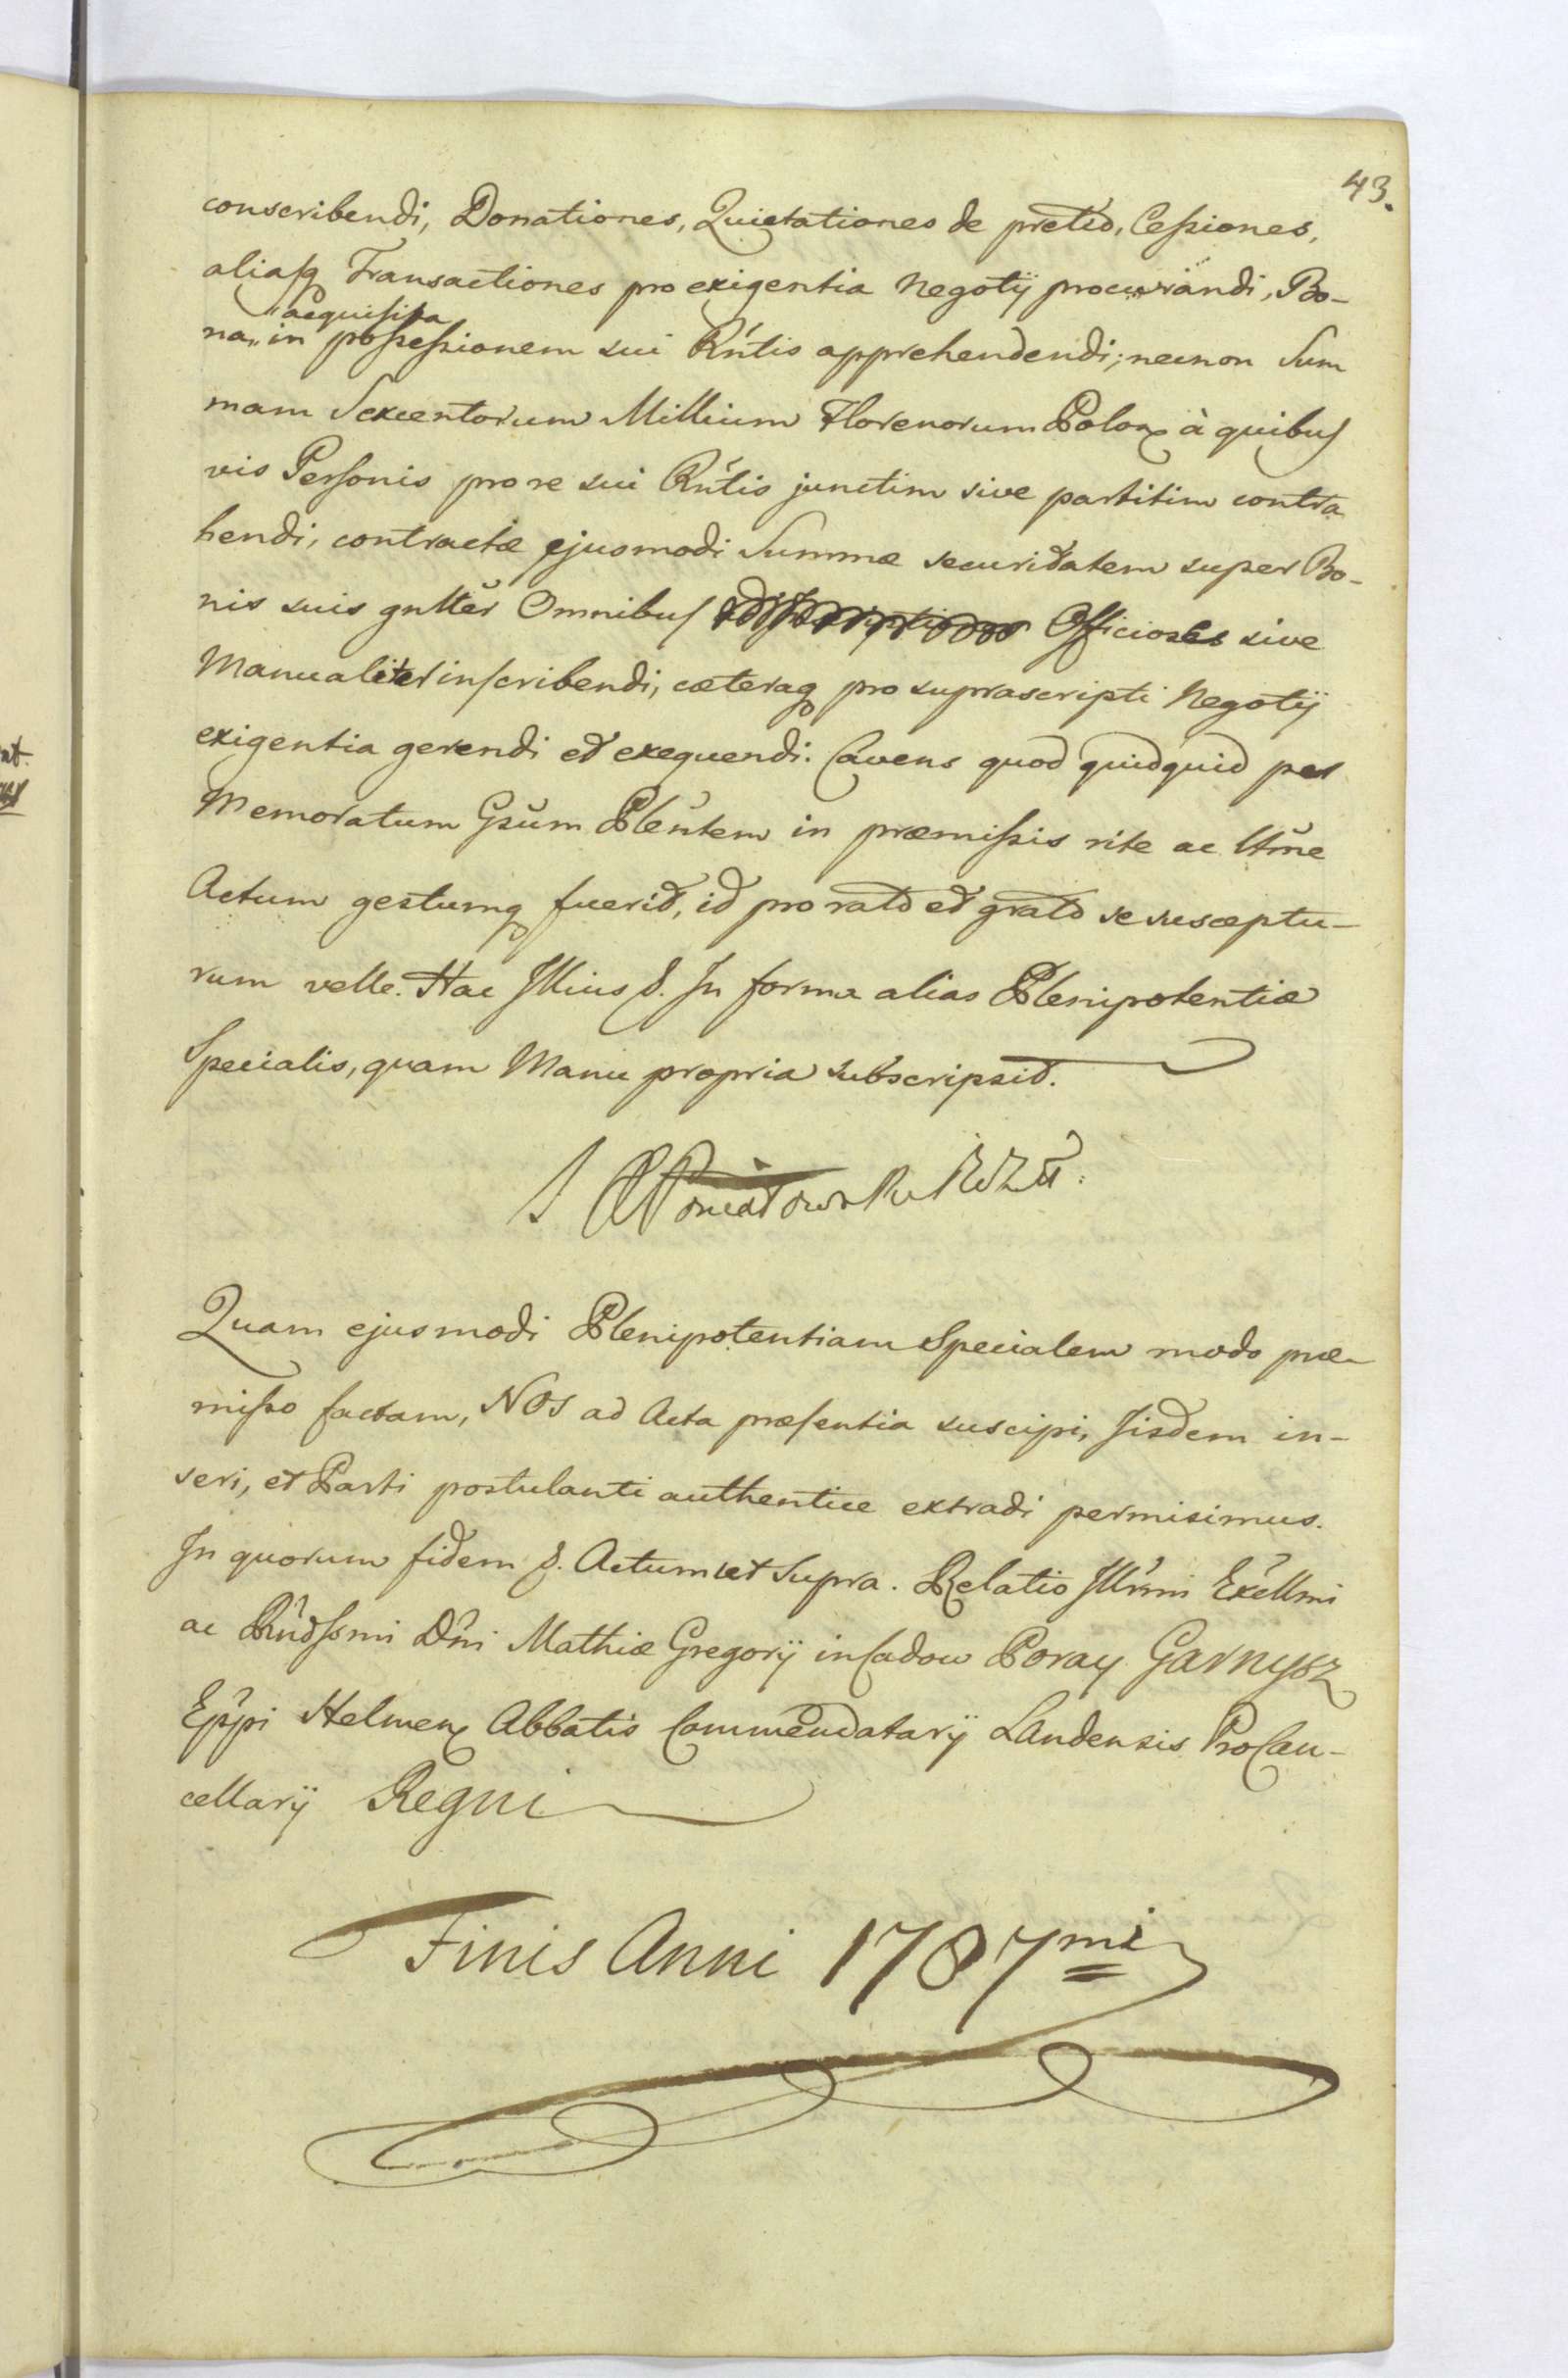 43.
conscribendi, Donationes, Quietationes de pretio, Cessiones,
aliasq Transactiones pro exigentia Negotij procurandi, Bo-
acquisita
na„ in possessionem sui Rn̄tis apprehendendi; necnon Sum
mam Sexcentorum Millium Florenorum Polon à quibus
vis Personis pro re sui Rn̄tis junctim sive partitim contra
hendi, contractæ ejusmodi Summæ securitatem super Bo-
nis suis gn̄lter Omnibus Officiose sive
Manualiter inscribendi, cæteraq pro suprascripti Negotij
exigentia gerendi et exequendi. Cavens quod quidquid per
Memoratum Gsūm Plēntem in præmissis rite ac ltm̄e
Actum gestumq fuerit, id pro rato et grato se suscæptu-
rum velle. Hac Illius &. In forma alias Plenipotentiæ
Specialis, quam Manu propria subscripsit.
Poniatowski
Quam ejusmodi Plenipotentiam Specialem modo præ-
misso factam, NOS ad Acta præsentia suscipi, Jisdem in-
seri, et Parti postulanti authentice extradi permisimus.
In quorum fidem &. Actum ut Supra. Relatio Illr̄mi Exc̄llmi
ac Rn̄dssmi Dn̄i Mathiæ Gregorij in Cadow Poray Garnysz
Ep̄pi Helmen Abbatis Commendatarij Landensis ProCan-
cellarij Regni
Finis Anni 1787mi